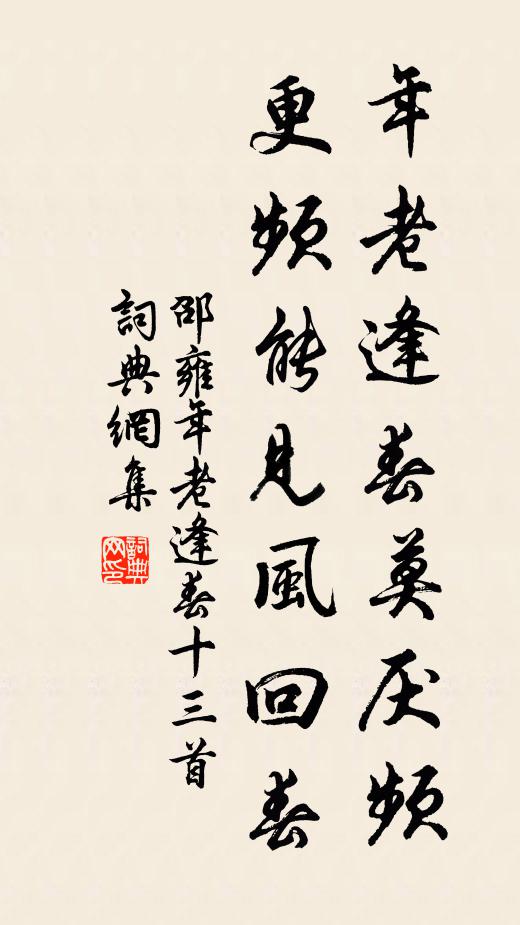 年老逢春莫厌頻
更頻能見風回春
邵雍年老逢春十三首
詞典網集
詞典网印